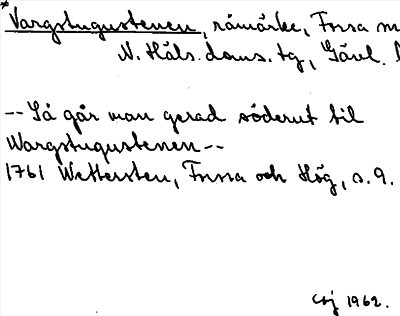 *Vargstugustenen, råmärke, Forsa
N. Häls. doms. tg, Gävl.
-- Så går man gerad söderut til
Wargstugustenen --
1761 Wettersten, Forsa och Hög, s. 9.
1962.